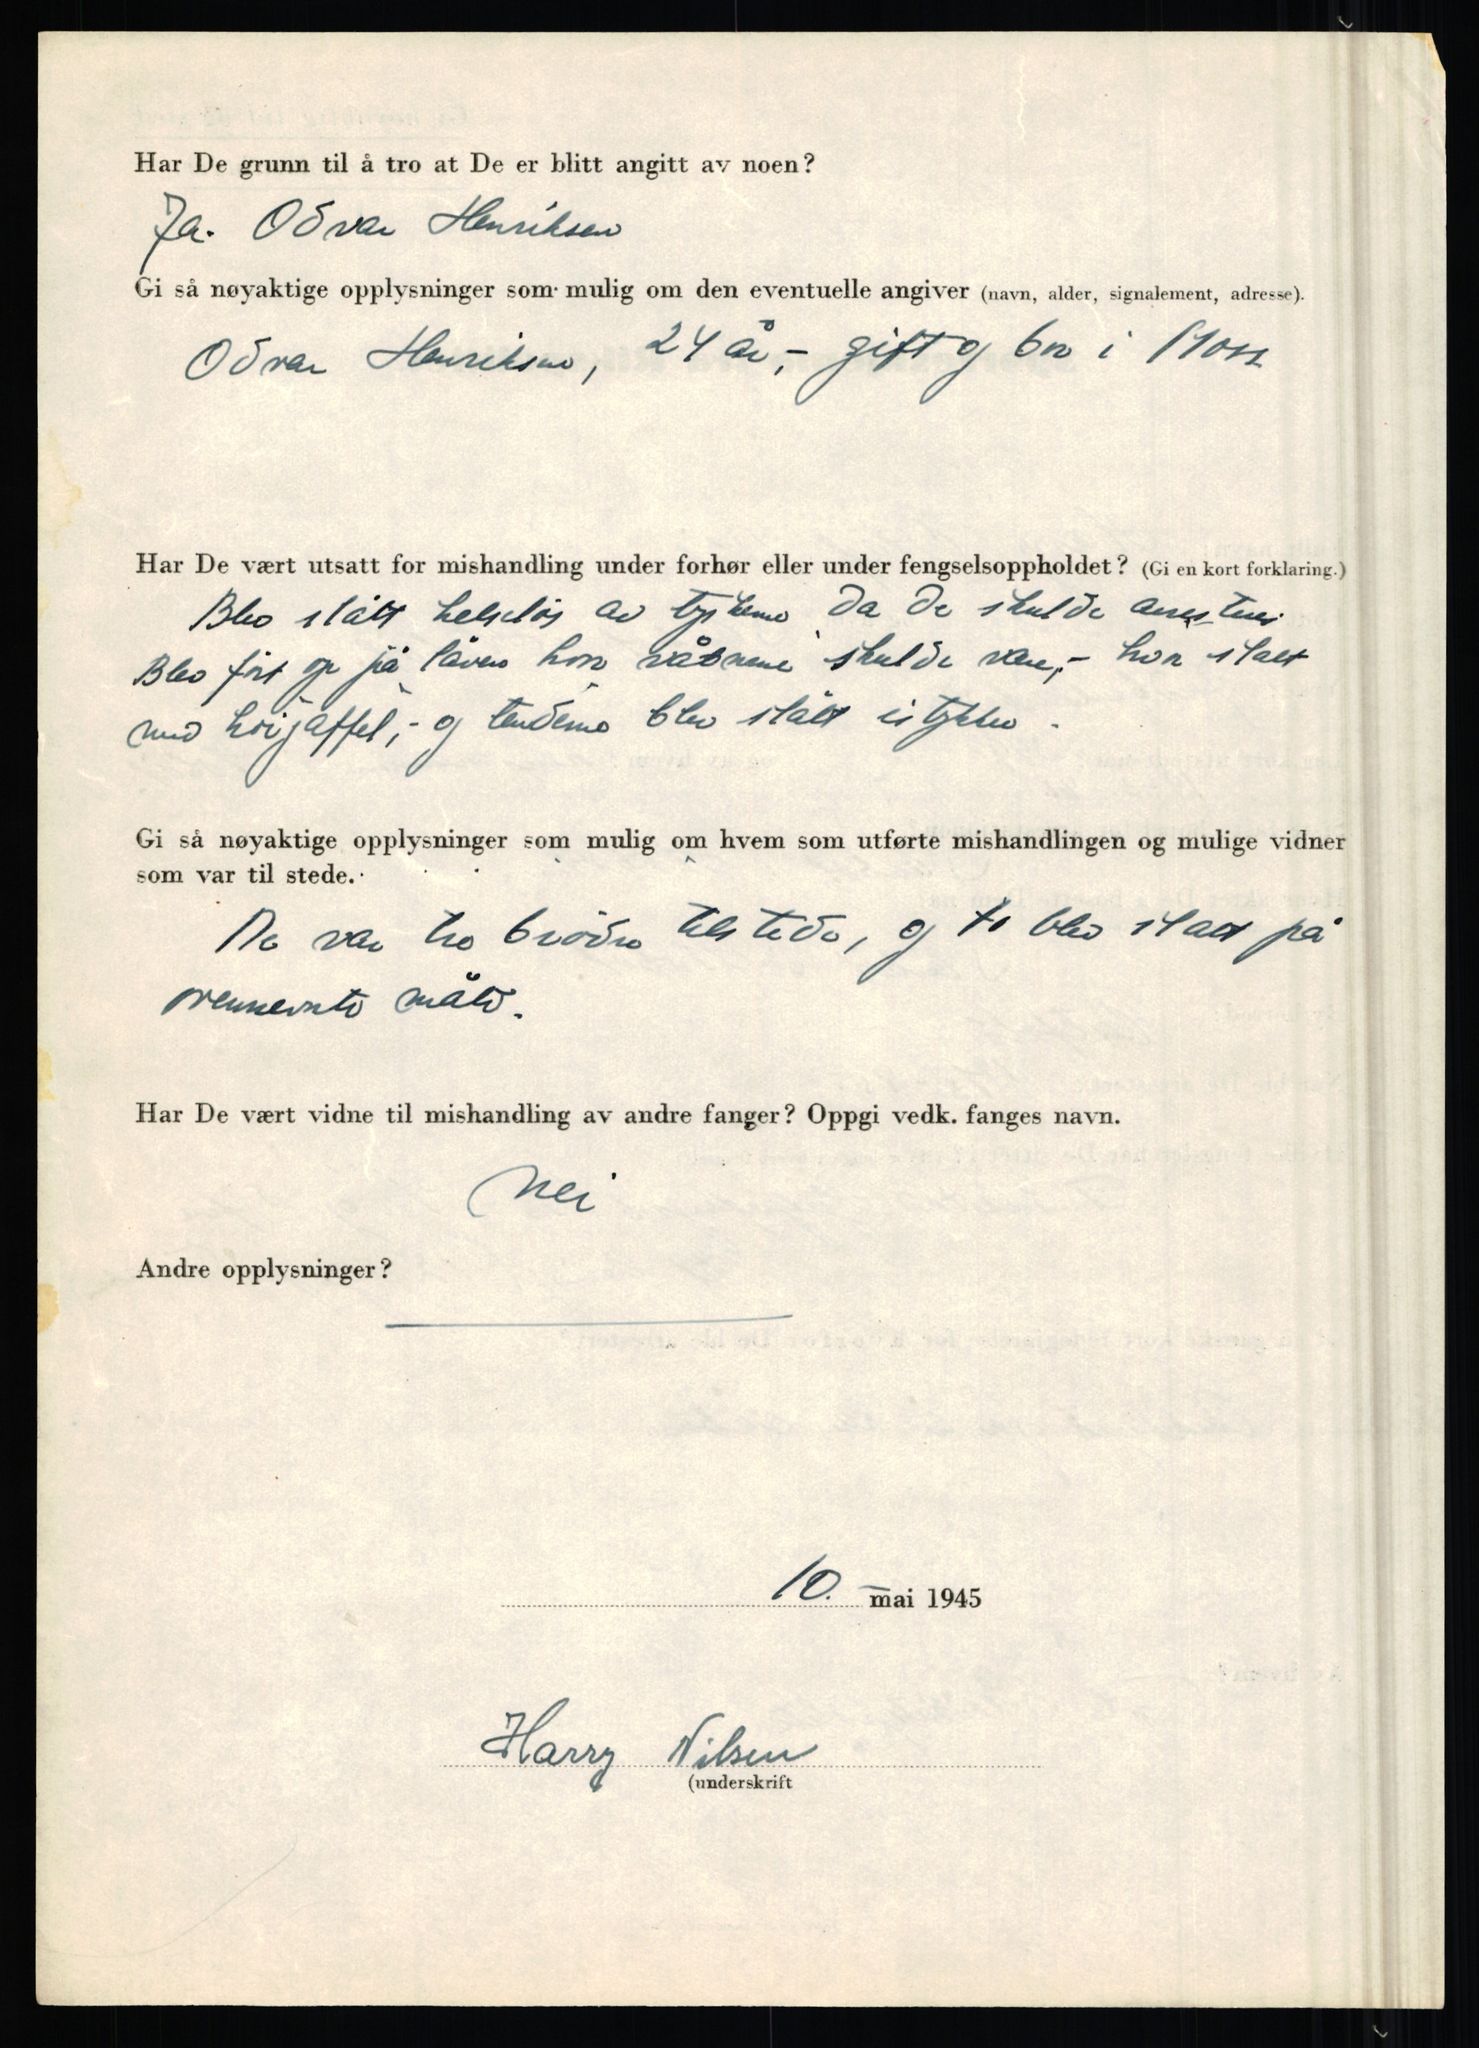 Har De grunn til å tro at De er blitt angitt av noen?
Ja. Odvar Henriksen
Gi så nøyaktige opplysninger som mulig om den eventuelle angiver (navn, alder, signalement, adresse).
Odvar Henriksen, 24 år,- gift og bor i Moss
Har De vært utsatt for mishandling under forhør eller under fengselsoppholdet? (Gi en kort forklaring.)
Blev slått helseløs av tyskerne da de skulde arrestere
Blev ført op på låven hvor våbnene skulde være,- hvor slått
med høigaffel,- og tenderne blev slått istykker.
Gi så nøyaktige opplysninger som mulig om hvem som utførte mishandlingen og mulige vidner
som var til stede.
De var tre brødre tilstede, og to blev slått på
ovennevnte måte.
Har De vært vidne til mishandling av andre fanger? Oppgi vedk. fanges navn.
Nei
Andre opplysninger?
10. mai 1945
Harry Nilsen
(underskrift